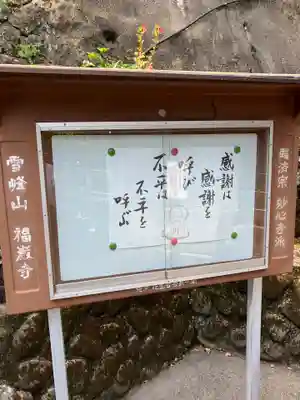 臨済宗 妙心寺派
感謝は
感謝を
呼び
不平は
不平を
呼ぶ
雪峰山 福巌寺